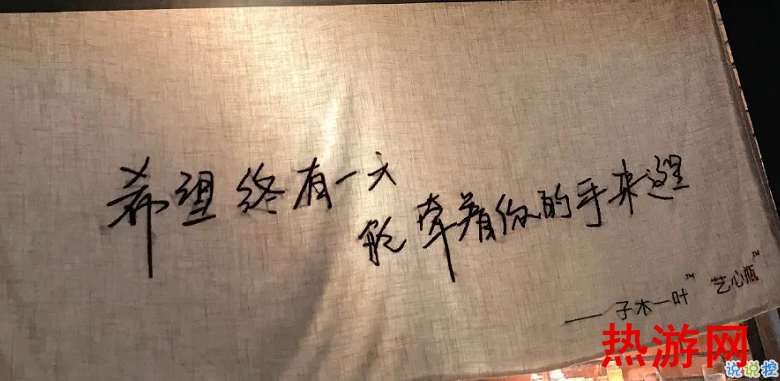 希望终有一天
能牵着你的手来这里
——子木一叶™ 艺心瓶™
热游网
说说控